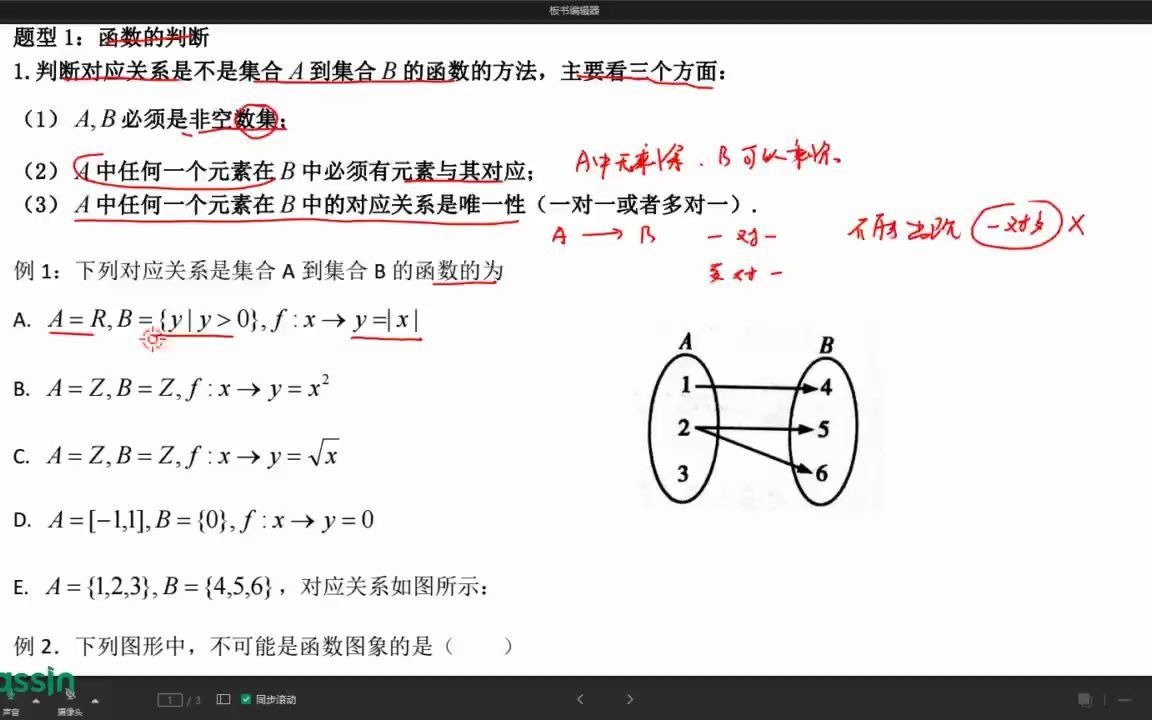 板书编辑器
题型 1：函数的判断
1.判断对应关系是不是集合 A 到集合 B 的函数的方法，主要看三个方面：
（1） A, B 必须是非空数集；
（2） A 中任何一个元素在 B 中必须有元素与其对应； A中无剩余．B可以剩余．
（3） A 中任何一个元素在 B 中的对应关系是唯一性（一对一或者多对一）.
A → B 一对一 不能出现 一对多 X
多对一
例 1：下列对应关系是集合 A 到集合 B 的函数的为
A. A = R, B = {y | y > 0}, f : x → y =| x |
B. A = Z, B = Z, f : x → y = x²
C. A = Z, B = Z, f : x → y = √x
D. A = [−1,1], B = {0}, f : x → y = 0
E. A = {1,2,3}, B = {4,5,6}，对应关系如图所示：
A B
1 4
2 5
3 6
例 2．下列图形中，不可能是函数图象的是（ ）
assin
声音 摄像头 1 / 3 同步滚动